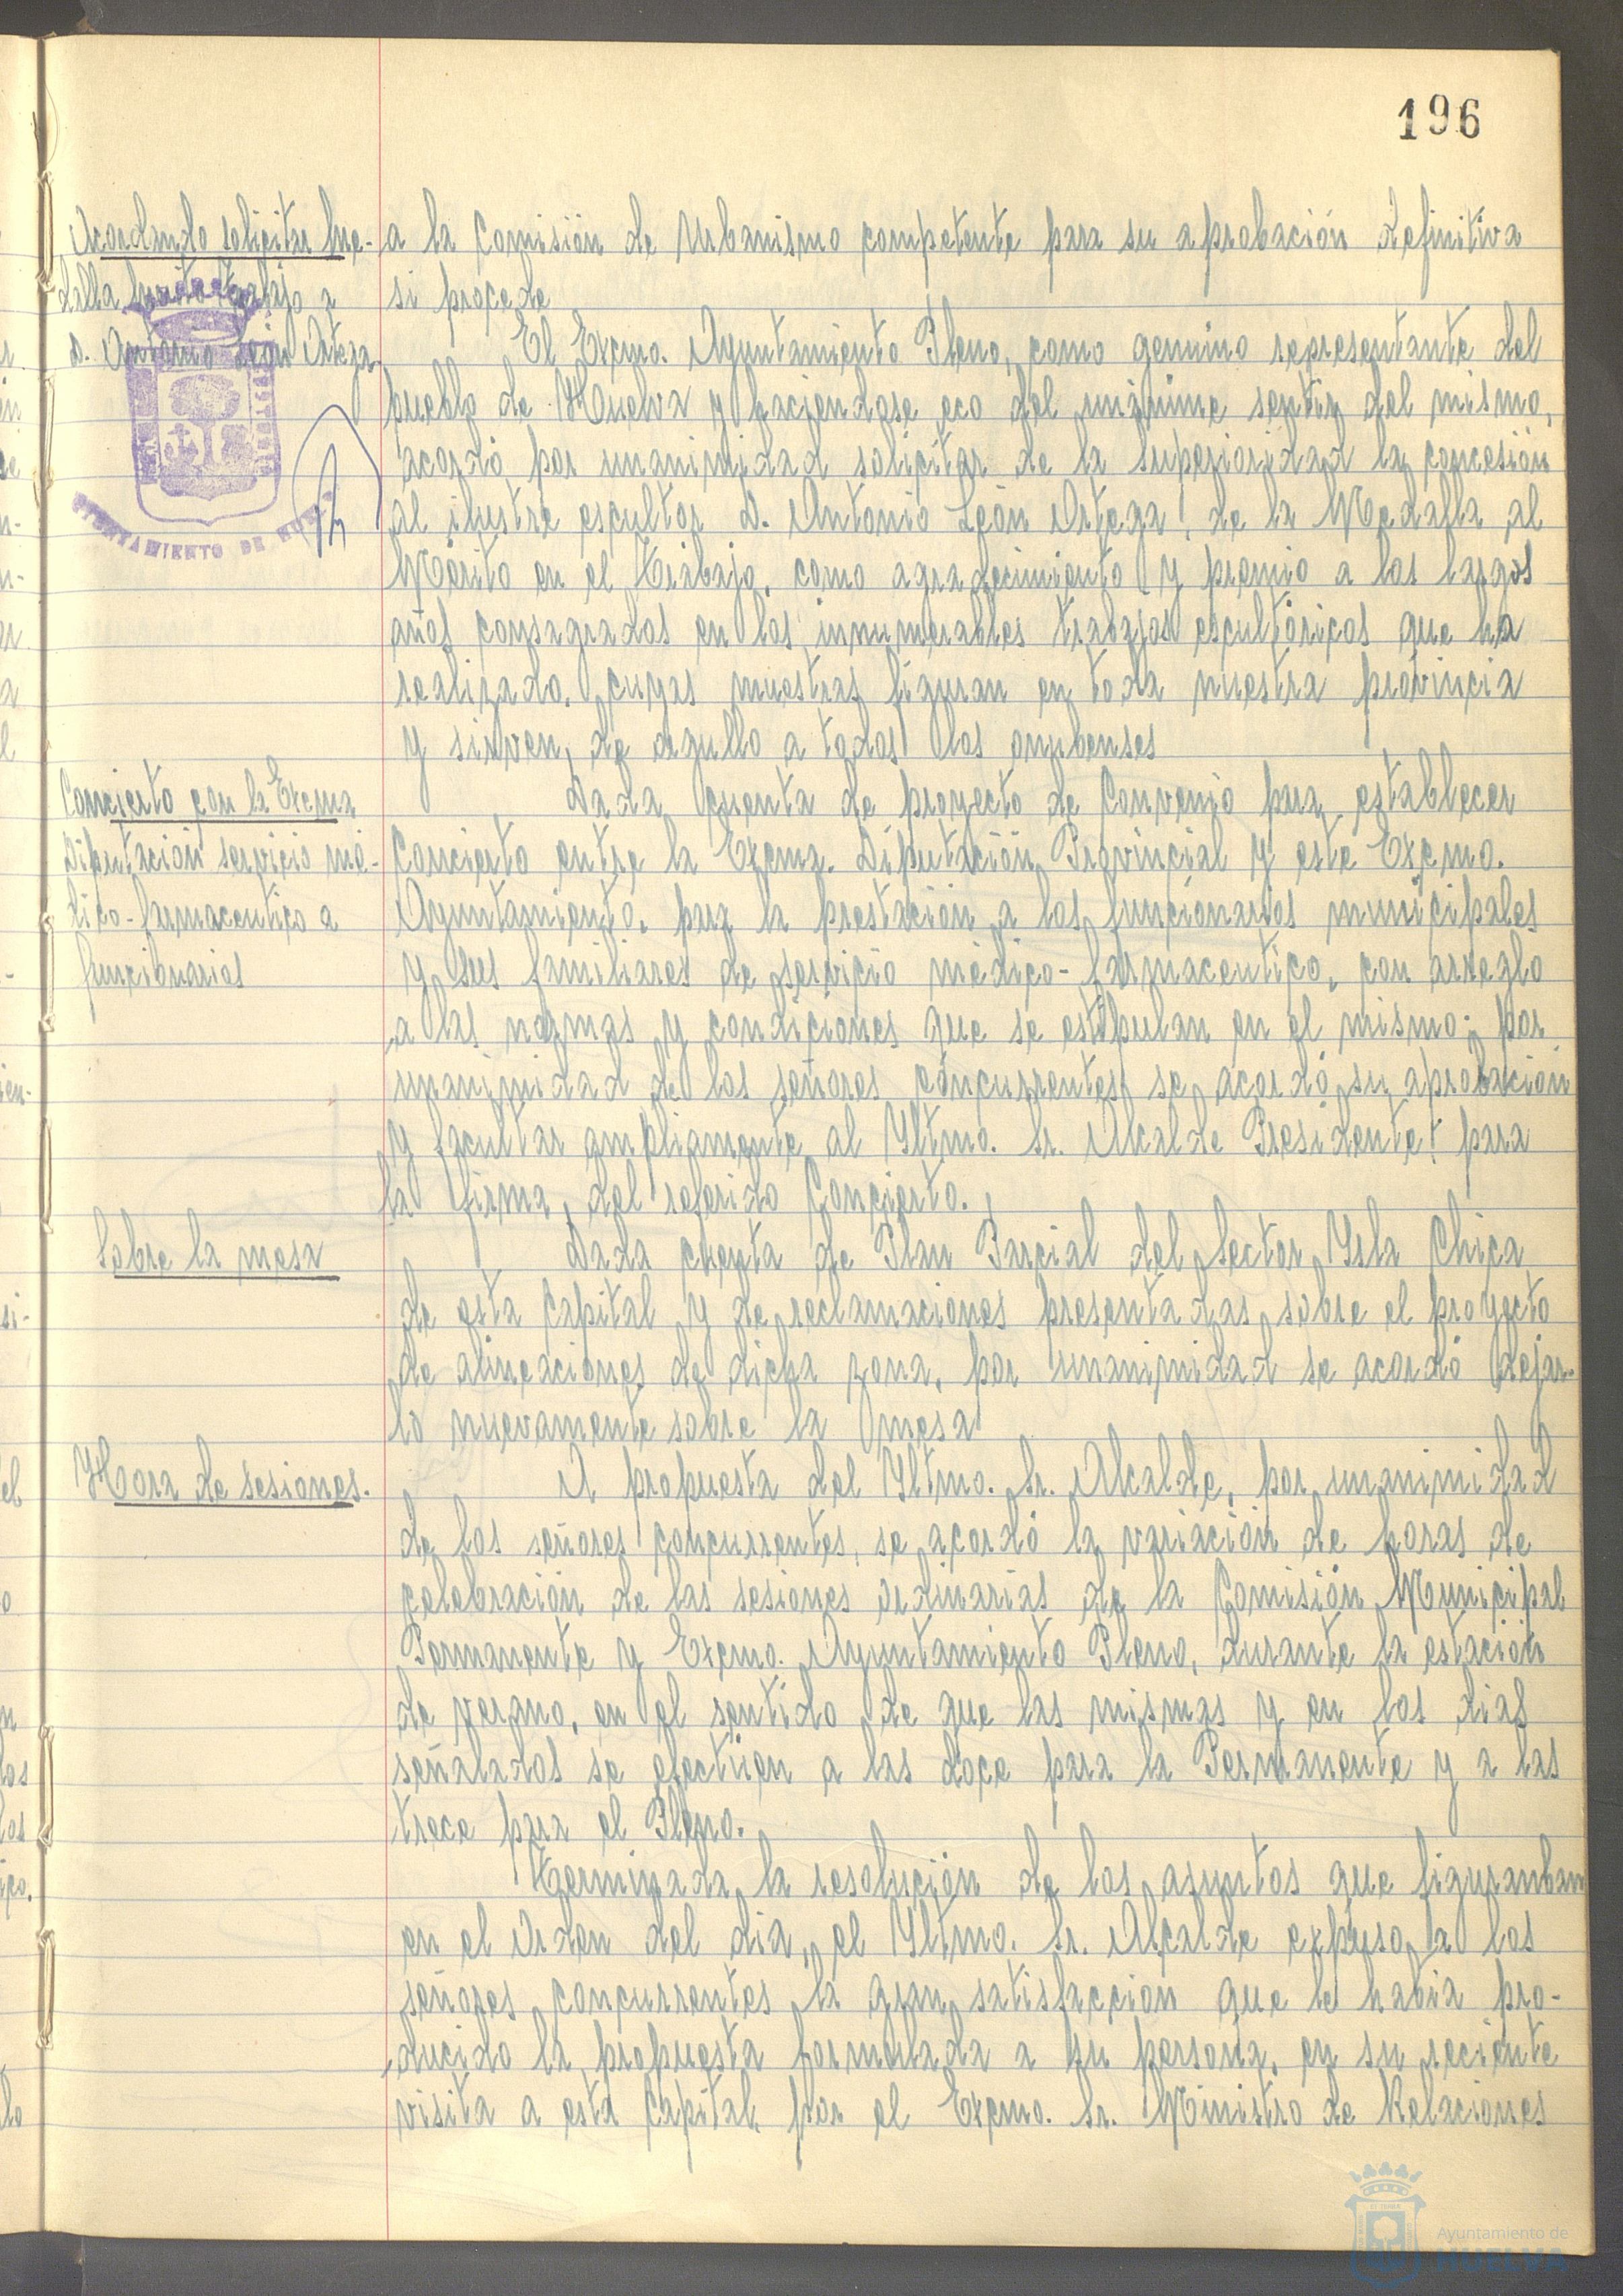 196
Acordando solicitar Me-
dalla Merito Trabajo a
D. Antonio León Ortega
a la Comisión de Urbanismo competente para su aprobación definitiva
si procede
El Excmo. Ayuntamiento Pleno, como genuino representante del
pueblo de Huelva y haciendose eco del unánime sentir del mismo,
acordó por unanimidad solicitar de la Superioridad la concesión
al ilustre escultor D. Antonio León Ortega, de la Medalla al
Mérito en el Trabajo, como agradecimiento y premio a los largos
años consagrados en los innumerables trabajos escultóricos que ha
realizado, cuyas muestras figuran en toda nuestra provincia
y sirven, de orgullo a todos los onubenses
Concierto con la Excma
Diputación servicio mé-
dico-farmaceutico a
funcionarios
Dada cuenta de proyecto de Convenio para establecer
Concierto entre la Excma. Diputación Provincial y este Excmo.
Ayuntamiento, para la prestación a los funcionarios municipales
y sus familiares de servicio médico-farmaceutico, con arreglo
a las normas y condiciones que se estipulan en el mismo; por
unanimidad de los señores concurrentes se acordó su aprobación
y facultar ampliamente al Yltmo. Sr. Alcalde Presidente para
la firma del referido Concierto.
Sobre la mesa
Dada cuenta de Plan Parcial del Sector Ysla Chica
de esta Capital y de reclamaciones presentadas sobre el proyecto
de alineaciones de dicha zona, por unanimidad se acordó dejar-
lo nuevamente sobre la mesa
Hora de sesiones.
A propuesta del Yltmo. Sr. Alcalde, por unanimidad
de los señores concurrentes, se acordó la variación de horas de
celebración de las sesiones ordinarias de la Comisión Municipal
Permanente y Excmo. Ayuntamiento Pleno, durante la estación
de verano, en el sentido de que las mismas y en los dias
señalados se efectúen a las doce para la Permanente y a las
trece para el Pleno.
Terminada la resolución de los asuntos que figuranban
en el Orden del día, el Yltmo. Sr. Alcalde expuso a los
señores concurrentes la gran satisfacción que le había pro-
ducido la propuesta formulada a su persona, en su reciente
visita a esta Capital, por el Excmo. Sr. Ministro de Relaciones
AYUNTAMIENTO DE HUELVA
Ayuntamiento de
HUELVA